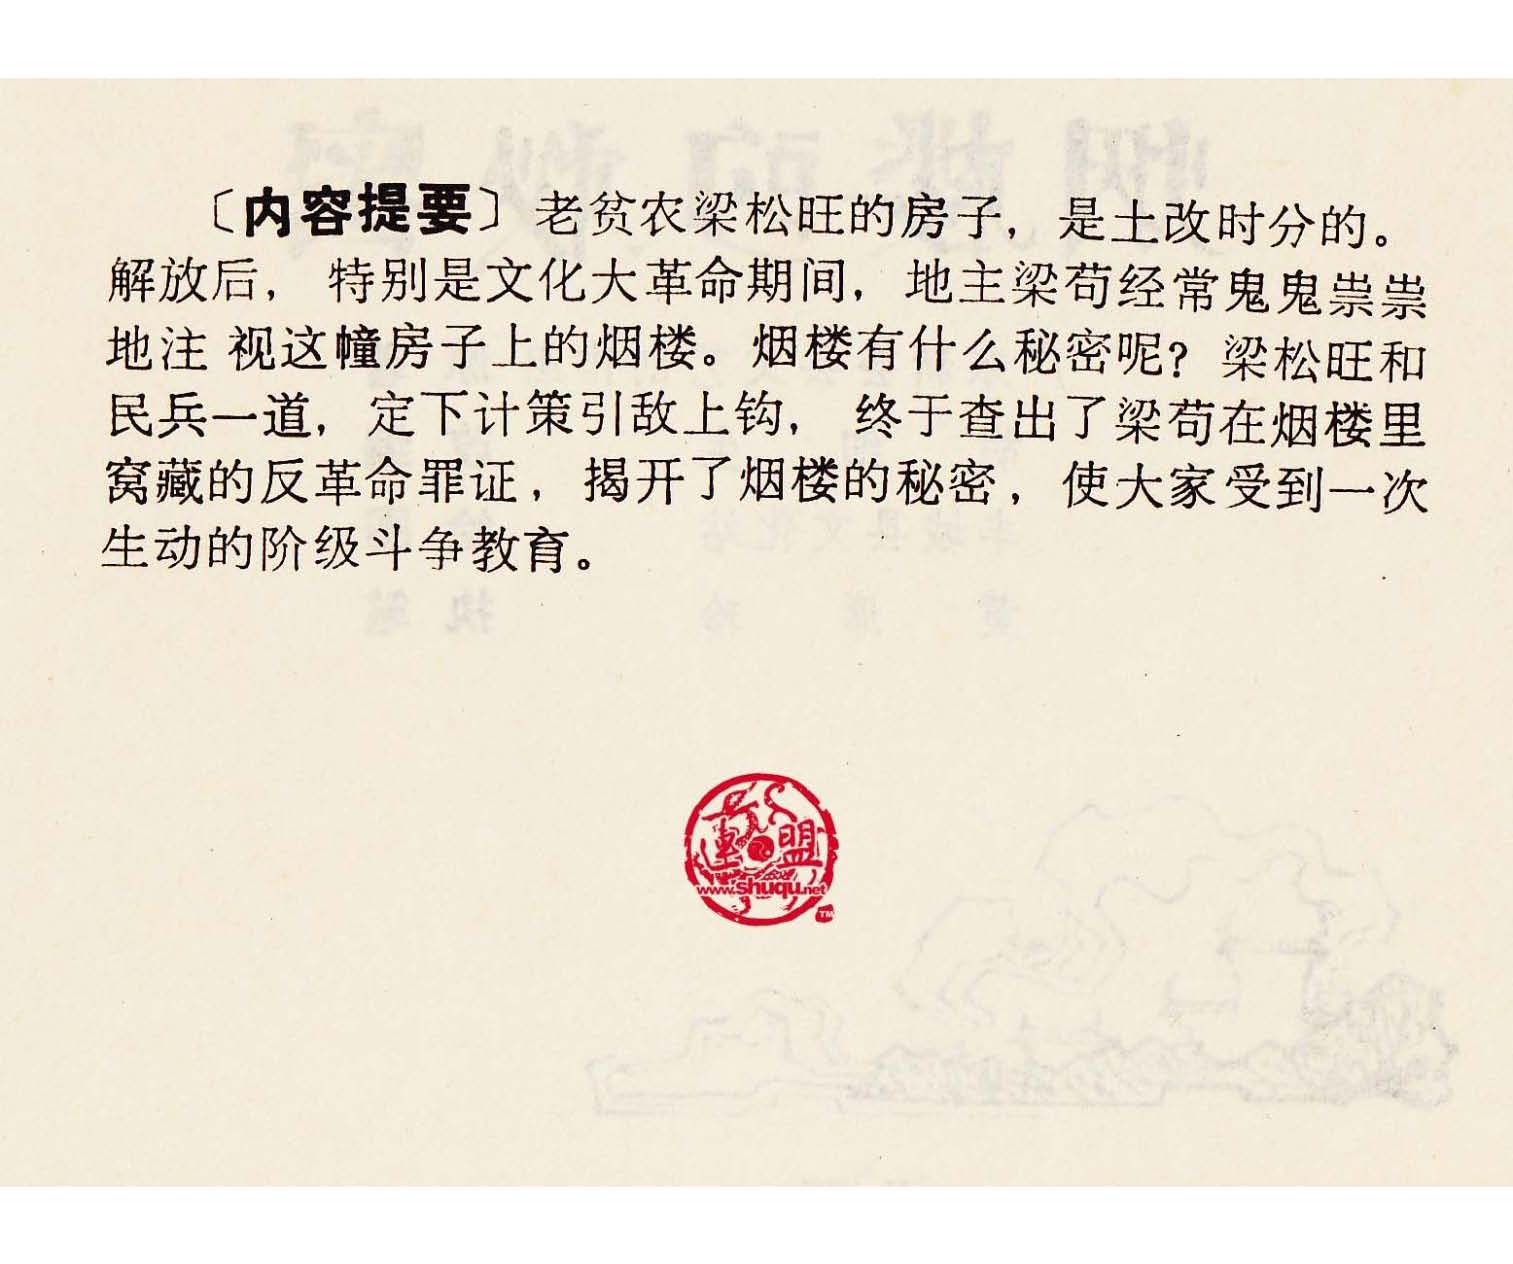 〔内容提要〕老贫农梁松旺的房子，是土改时分的。
解放后，特别是文化大革命期间，地主梁苟经常鬼鬼祟祟
地注视这幢房子上的烟楼。烟楼有什么秘密呢？梁松旺和
民兵一道，定下计策引敌上钩，终于查出了梁苟在烟楼里
窝藏的反革命罪证，揭开了烟楼的秘密，使大家受到一次
生动的阶级斗争教育。
連盟
www.shuqu.net
TM